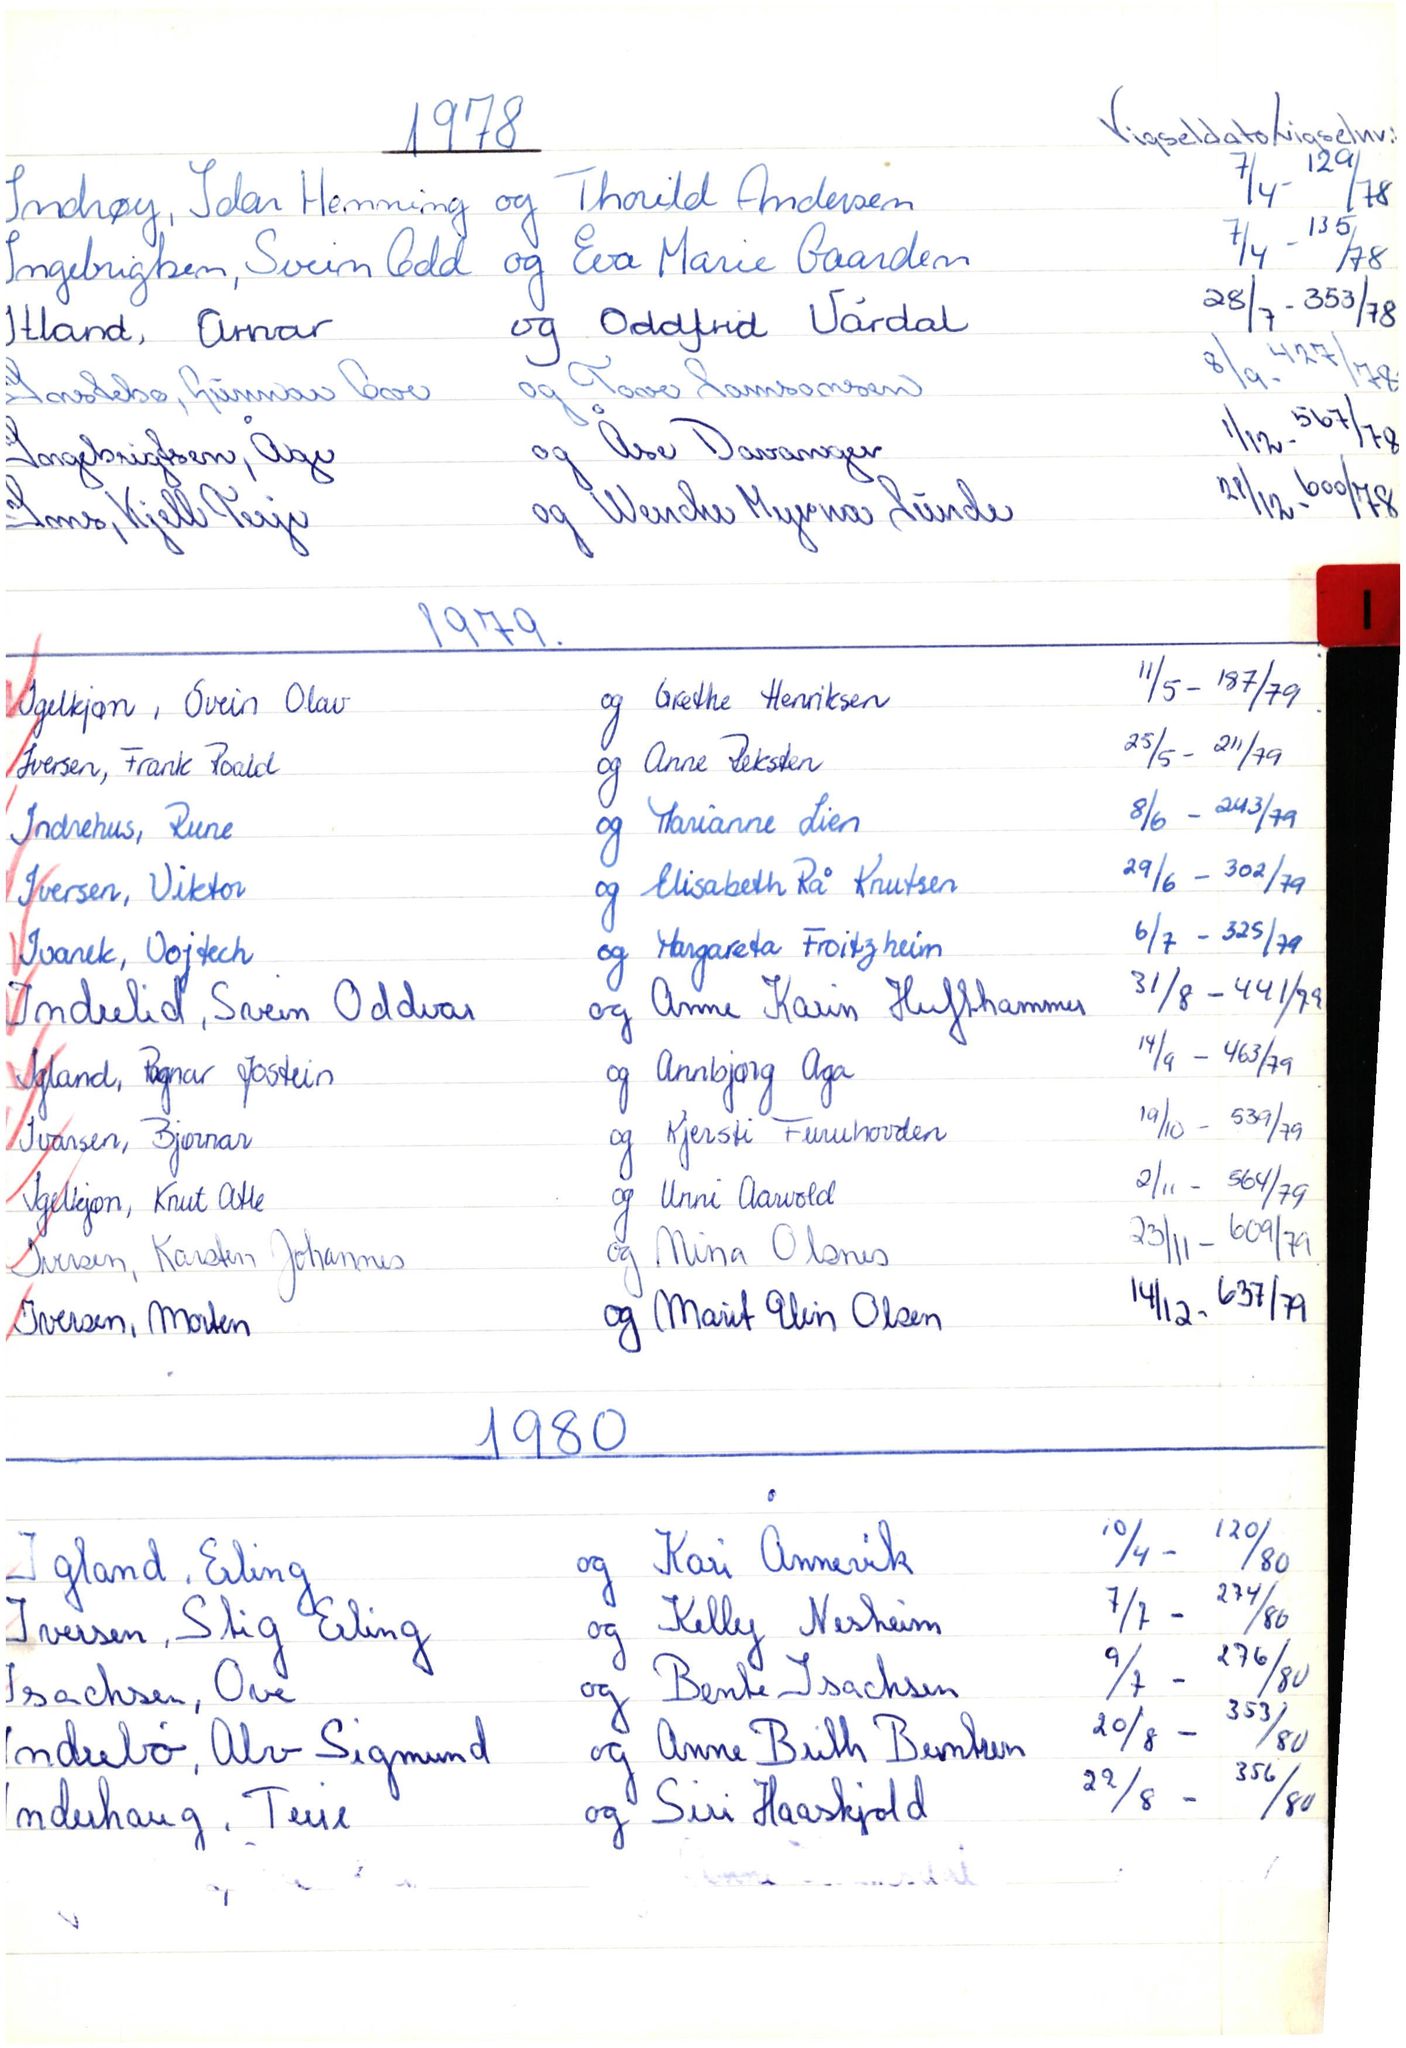 1978 Vigseldato/vigselnr.:
Indrøy, Idar Henning og Thorild Andersen 7/4 - 129/78
Ingebrigtsen, Svein Odd og Eva Marie Gaarden 7/4 - 135/78
Itland, Arnar og Oddfrid Vårdal 28/7 - 353/78
Instebø, Gunnar Ove og Tove Samsonsen 8/9 - 427/78
Ingebrigtsen, Åge og Åse Davanger 1/12 - 567/78
Ims, Kjell Terje og Wenche Myrna Sunde 21/12 - 600/78
I
1979.
Igelkjøn, Svein Olav og Grethe Henriksen 11/5 - 187/79
Iversen, Frank Roald og Anne Reksten 25/5 - 211/79
Indrehus, Rune og Marianne Lien 8/6 - 243/79
Iversen, Viktor og Elisabeth Rå Knutsen 29/6 - 302/79
Ivanek, Vojtech og Margareta Froitzheim 6/7 - 325/79
Indrelid, Svein Oddvar og Anne Karin Hufthammer 31/8 - 441/79
Igland, Ragnar Jostein og Annbjørg Aga 14/9 - 463/79
Ivarsen, Bjørnar og Kjersti Furuhovden 19/10 - 539/79
Igelkjøn, Knut Atle og Unni Aarvold 2/11 - 564/79
Iversen, Karsten Johannes og Nina Olsnes 23/11 - 609/79
Iversen, Morten og Marit Elin Olsen 14/12 - 637/79
1980
Igland, Erling og Kari Ånnevik 10/4 - 120/80
Iversen, Stig Erling og Kelly Nesheim 7/7 - 274/80
Isachsen, Ove og Bente Isachsen 9/7 - 276/80
Indrebø, Alv Sigmund og Anne Brith Berntsen 20/8 - 353/80
Inderhaug, Terje og Siri Haaskjold 22/8 - 356/80